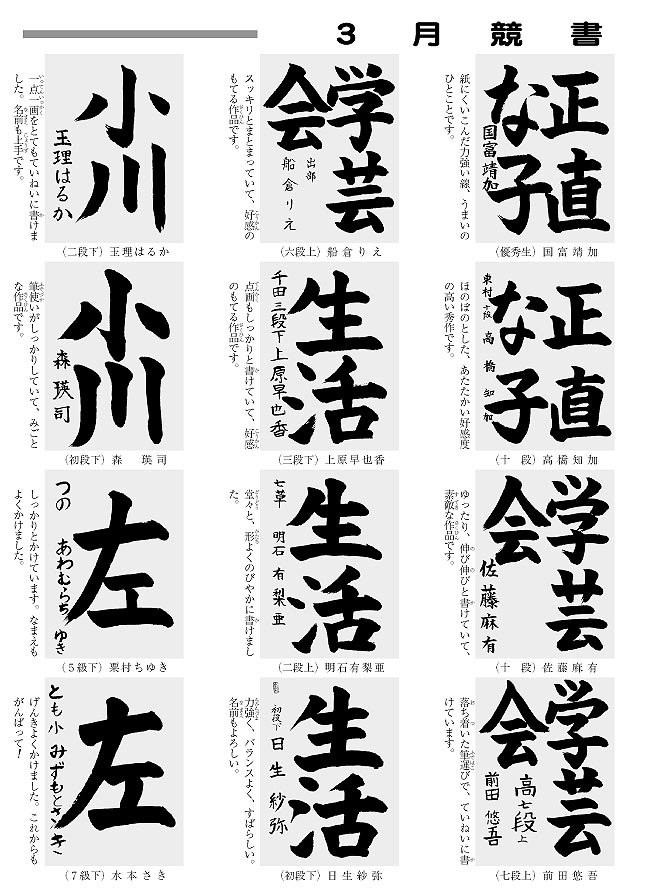 3月競書
正直
な子
国富靖加
紙にくいこんだ力強い線、うまいの
ひとことです。
（優秀生）国富靖加
学芸
会
出部
船倉りえ
スッキリとまとまっていて、好感の
もてる作品です。
（六段上）船倉りえ
小川
玉理はるか
一点一画をとてもていねいに書けま
した。名前も上手です。
（二段下）玉理はるか
正直
な子
東村 十段 高橋知加
ほのぼのとした、あたたかい好感度
の高い秀作です。
（十　段）高橋知加
生活
千田三段下上原早也香
点画もしっかりと書けていて、好感
のもてる作品です。
（三段下）上原早也香
小川
森瑛司
筆使いがしっかりしていて、みごと
な作品です。
（初段下）森　瑛司
学芸
会
佐藤麻有
ゆったり、伸び伸びと書けていて、
素敵な作品です。
（十　段）佐藤麻有
生活
七草 明石有梨亜
堂々と、形よくのびやかに書けまし
た。
（二段上）明石有梨亜
左
つの あわむらちゆき
しっかりとかけています。なまえも
よくかけました。
（5級下）粟村ちゆき
学芸
会
高七段上
前田悠吾
落ち着いた筆運びで、ていねいに書
けています。
（七段上）前田悠吾
生活
初段下 日生紗弥
力強く、バランスよく、すばらしい。
名前もよろしい。
（初段下）日生紗弥
左
とも小 みずもとさき
げんきよくかけました。これからも
がんばって！
（7級下）水本さき